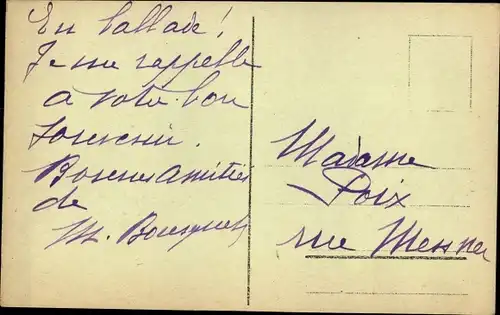 En ballade!
Je me rappelle
a votre bon
souvenir.
Bonnes Amitiés
de
M. Bousquet
Madame
Poix
rue Messner